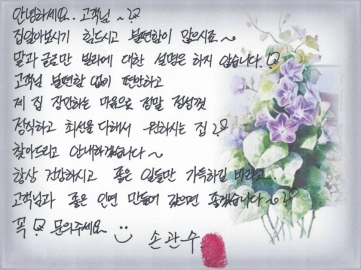 안녕하세요. 고객님 ~
집알아보시기 힘드시고 불편함이 많으시죠~
말과 글로만 빌라에 대한 설명은 하지 않습니다.
고객님 불편함 없이 편안하고
제 집 장만하는 마음으로 정말 정성껏
정직하고 최선을 다해서 원하시는 집
찾아드리고 안내하겠습니다~
항상 건강하시고 좋은 일들만 가득하길 바라고...
고객님과 좋은 인연 만들어 갔으면 좋겠습니다~
꼭! 문의주세요~
손관수